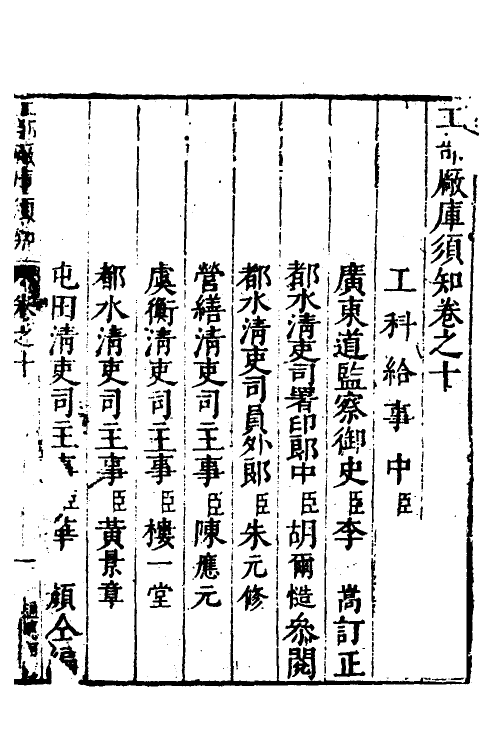 工部廠庫須知卷之十
工科給事中臣
廣東道監察御史臣李嵩訂正
都水清吏司署印郎中臣胡爾慥叅閱
都水清吏司員外郎臣朱元修
營繕清吏司主事臣陳應元
虞衡清吏司主事臣樓一堂
都水清吏司主事臣黃景章
屯田清吏司主事臣華顏仝編
工部廠庫須知 卷之十 一